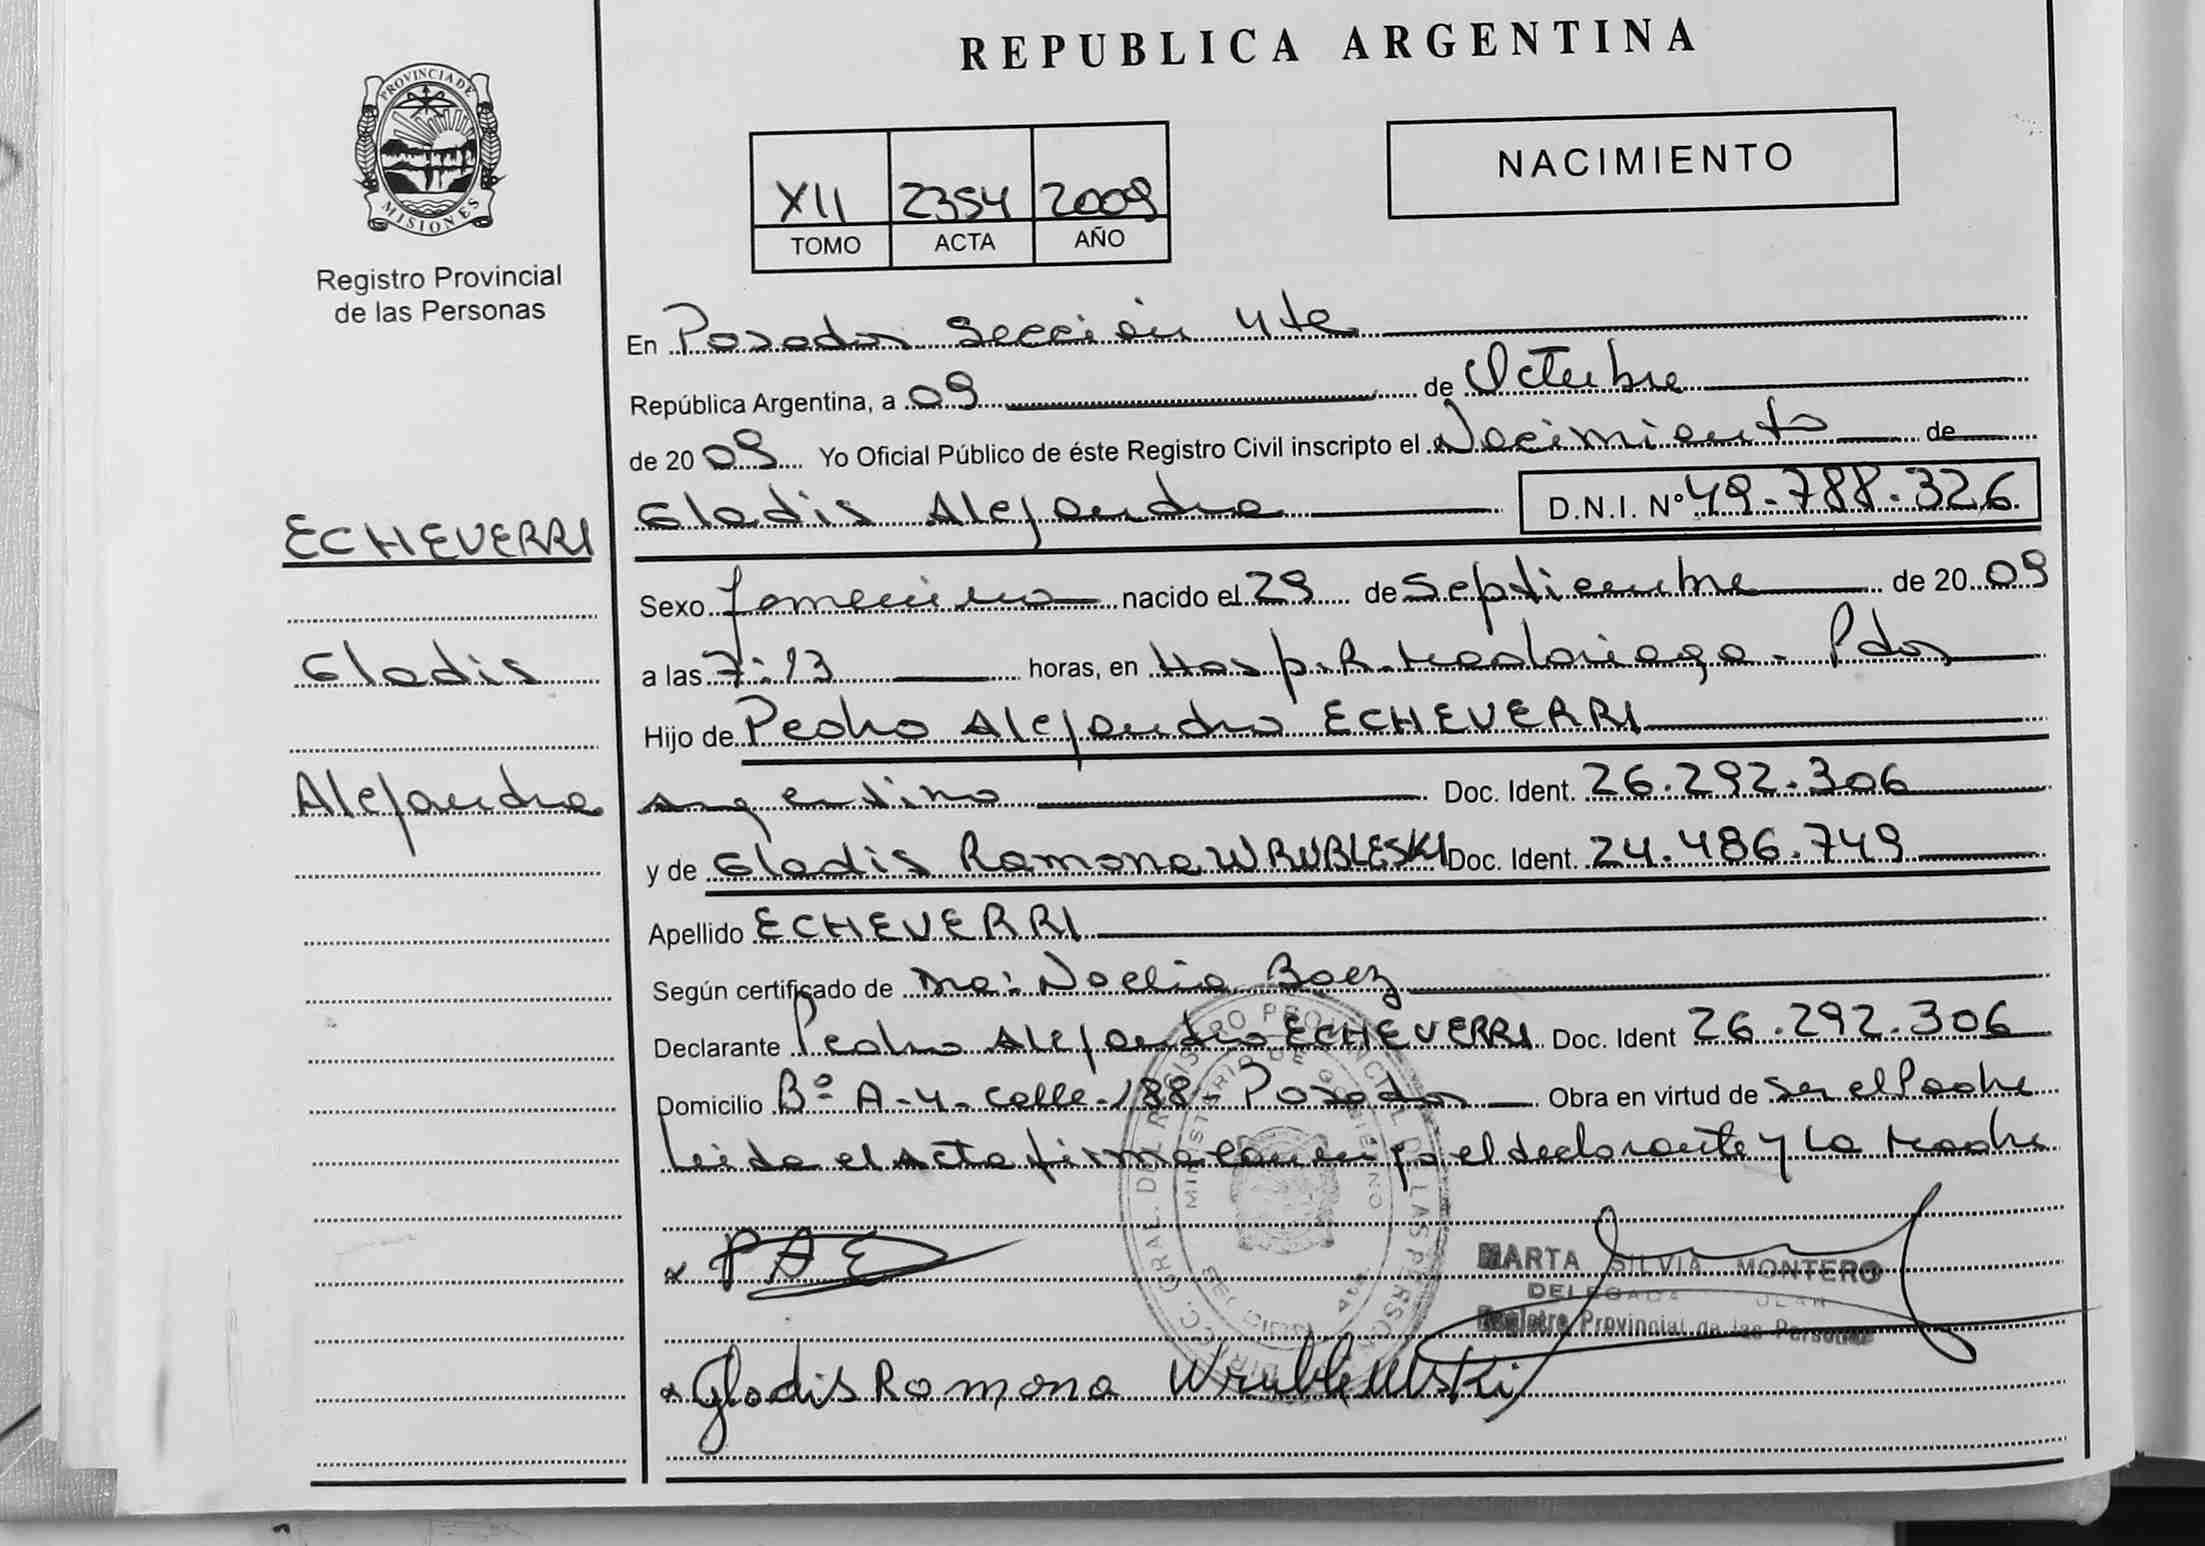 REPUBLICA ARGENTINA
PROVINCIA DE
MISIONES
Registro Provincial
de las Personas
NACIMIENTO
XII 2354 2009
TOMO ACTA AÑO
En Posadas Sección 4ta
República Argentina, a 09 de Octubre
de 2009 Yo Oficial Público de éste Registro Civil inscripto el Nacimiento de
Gladis Alejandra D.N.I. Nº 49.788.326
ECHEVERRI
Gladis
Alejandra
Sexo femenino nacido el 29 de Septiembre de 2009
a las 7:13 horas, en Hosp. R. Madariaga - Pdas
Hijo de Pedro Alejandro ECHEVERRI
argentino Doc. Ident. 26.292.306
y de Gladis Ramona WRUBLESKI Doc. Ident. 24.486.749
Apellido ECHEVERRI
Según certificado de Dra: Noelia Baez
Declarante Pedro Alejandro ECHEVERRI Doc. Ident 26.292.306
Domicilio Bº A-4- calle-188- Posadas Obra en virtud de ser el Padre
Leida el Acta firma conmigo el declarante y la Madre
PAE
MARTA SILVIA MONTERO
DELEGADA
Registro Provincial de las Personas
Gladis Ramona Wrublewski